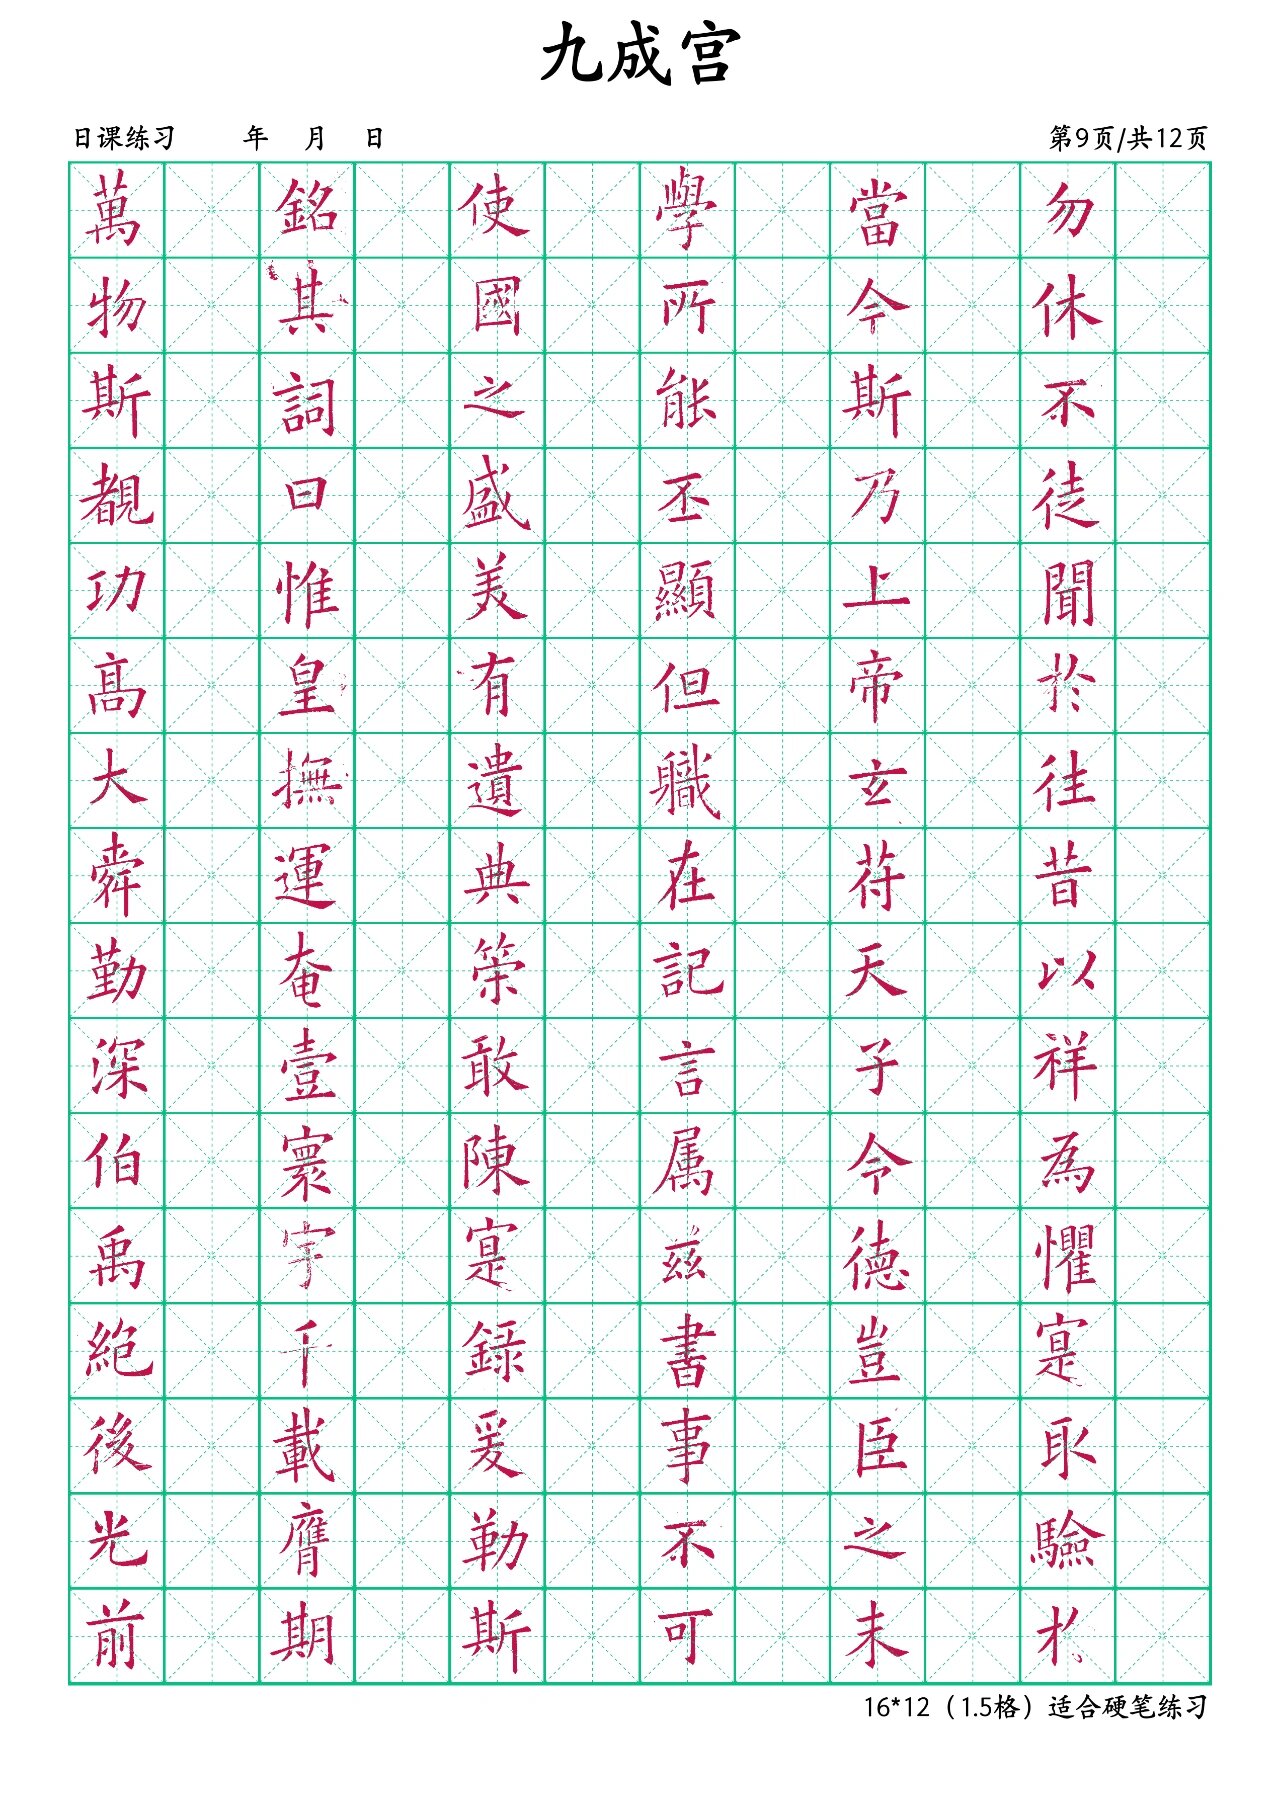 九成宫
日课练习 年 月 日
第9页/共12页
勿休不徒聞於往昔以祥為懼寔取驗於
當今斯乃上帝玄苻天子令德豈臣之末
學所能丕顯但職在記言属茲書事不可
使國之盛美有遺典策敢陳寔録爰勒斯
銘其詞曰惟皇撫運奄壹寰宇千載膺期
萬物斯覩功髙大舜勤深伯禹絶後光前
16*12（1.5格）适合硬笔练习